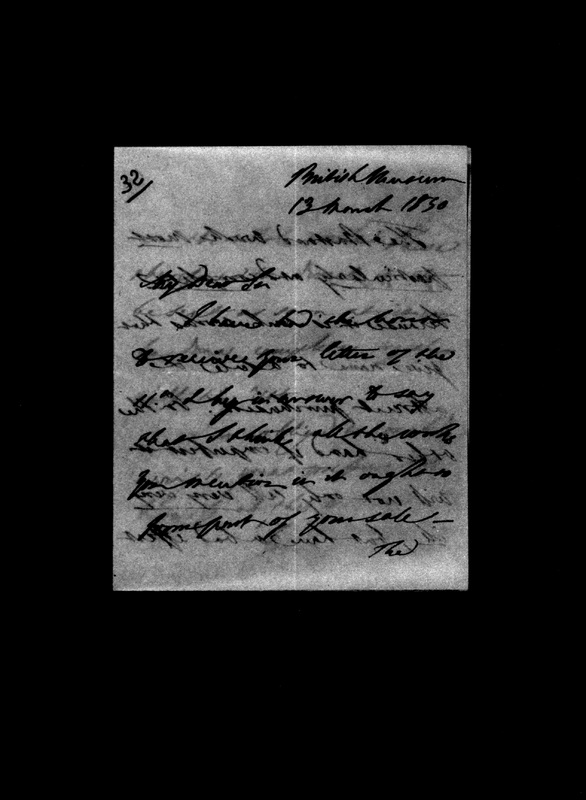 32/
British Museum
13 March 1850
My Dear Sir
I have had the honor
to receive your letter of the
11. and beg in answer to say
that I think all the works
you mention in it ought to
form part of your sale —
The